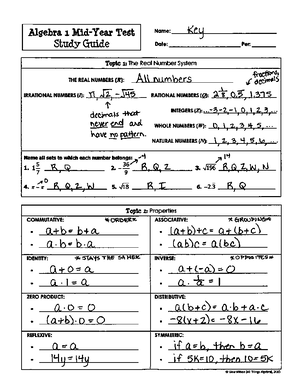 Algebra 1 Mid-Year Test
Study Guide
Name: Key
Date: Per:
Topic 1: The Real Number System
THE REAL NUMBERS (R): All numbers
fractions, decimals
IRRATIONAL NUMBERS (I): π, √2, -√45
decimals that never end and have no pattern.
RATIONAL NUMBERS (Q): 0.5, 1.375
INTEGERS (Z): -3, -2, -1, 0, 1, 2, 3...
WHOLE NUMBERS (W): 0, 1, 2, 3, 4, 5...
NATURAL NUMBERS (N): 1, 2, 3, 4, 5, 6...
Name all sets to which each number belongs:
R, Q
R, Q, Z
R, Q, Z, W, N
R, Q, Z, W
R, I
6. -2.3 R, Q
Topic 2: Properties
COMMUTATIVE: *ORDER*
• a+b = b+a
• a·b = b·a
ASSOCIATIVE: *GROUPING*
• (a+b)+c = a+(b+c)
• (ab)c = a(bc)
IDENTITY: *STAYS THE SAME*
• a+0 = a
• a·1 = a
INVERSE: *OPPOSITES*
• a+(-a) = 0
ZERO PRODUCT:
• a·0 = 0
• (a+b)·0 = 0
DISTRIBUTIVE:
• a(b+c) = a·b + a·c
• -8(x+2) = -8x - 16
REFLEXIVE:
• a = a
• 14y = 14y
SYMMETRIC:
• if a=b, then b=a
• if 5K=10, then 10=5K